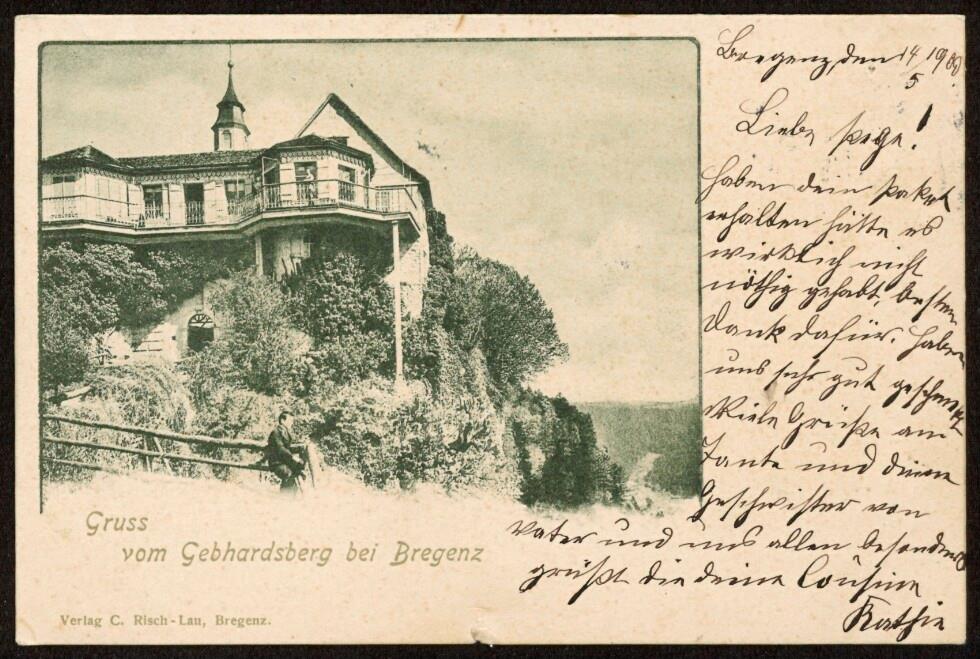 Bregenz, den 14/5 1900
Liebe
haben dein Paket
erhalten hätte es
wirklich nicht
nöthig gehabt, besten
Dank dafür. haben
uns sehr gut geschmekt
Viele Grüße am
Tante und deine
Geschwister von
Vater und uns allen besonders
grüßt die deine Coúsine
Kathie
Gruss
vom Gebhardsberg bei Bregenz
Verlag C. Risch-Lau, Bregenz.